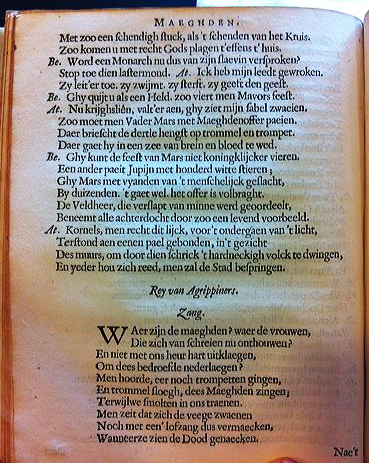 MAEGHDEN.
Met zoo een schendigh stuck, als 't schenden van het Kruis.
Zoo komen u met recht Gods plagen t'effens t'huis.
Be. Word een Monarch nu dus van zijn slaevin versproken?
Stop toe dien lastermond. At. Ick heb mijn leedt gewroken.
Zy leit'er toe. zy zwijmt. zy sterft. zy geeft den geest.
Be. Ghy quijt u als een Held. zoo viert men Mavors feest.
At. Nu krijghsliên, valt'er aen, ghy ziet mijn sabel zwaeien.
Zoo moet men Vader Mars met Maeghdenoffer paeien.
Daer briescht de dertle hengst op trommel en trompet.
Daer gaet hy in een zee van brein en bloed te wed.
Be. Ghy kunt de feest van Mars niet koningklijcker vieren.
Een ander paeit Jupijn met honderd witte stieren;
Ghy Mars met vyanden van 't menschelijck geslacht,
By duizenden. 't gaet wel. het offer is volbraght.
De Veldheer, die verslapt van minne werd geoordeelt,
Beneemt alle achterdocht door zoo een levend voorbeeld.
At. Kornels, men recht dit lijck, voor't ondergaen van 't licht,
Terstond aen eenen pael gebonden, in't gezicht
Des muurs, om door dien schrick 't hardneckigh volck te dwingen,
En yeder hou zich reed, men zal de Stad bespringen.
Rey van Agrippiners.
Zang.
WAer zijn de maeghden? waer de vrouwen,
Die zich van schreien nu onthouwen?
En niet met ons heur hart uitklaegen,
Om dees bedroefde nederlaegen?
Men hoorde, eer noch trompetten gingen,
En trommel sloegh, dees Maeghden zingen;
Terwijlwe smolten in ons traenen.
Men zeit dat zich de veege zwaenen
Noch met een' lofzang dus vermaecken,
Wanneerze zien de Dood genaecken.
Nae't